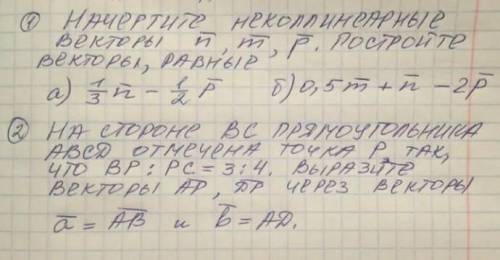 ① Начертите неколлинеарные
векторы n̅, m̅, p̅. Постройте
векторы, равные
а) 1/3 n̅ - 1/2 p̅ б) 0,5 m̅ + n̅ - 2p̅
② На стороне BC прямоугольника
ABCD отмечена точка P так,
что BP : PC = 3 : 4. Выразите
векторы AP, DP через векторы
a̅ = A̅B̅ и b̅ = AD.